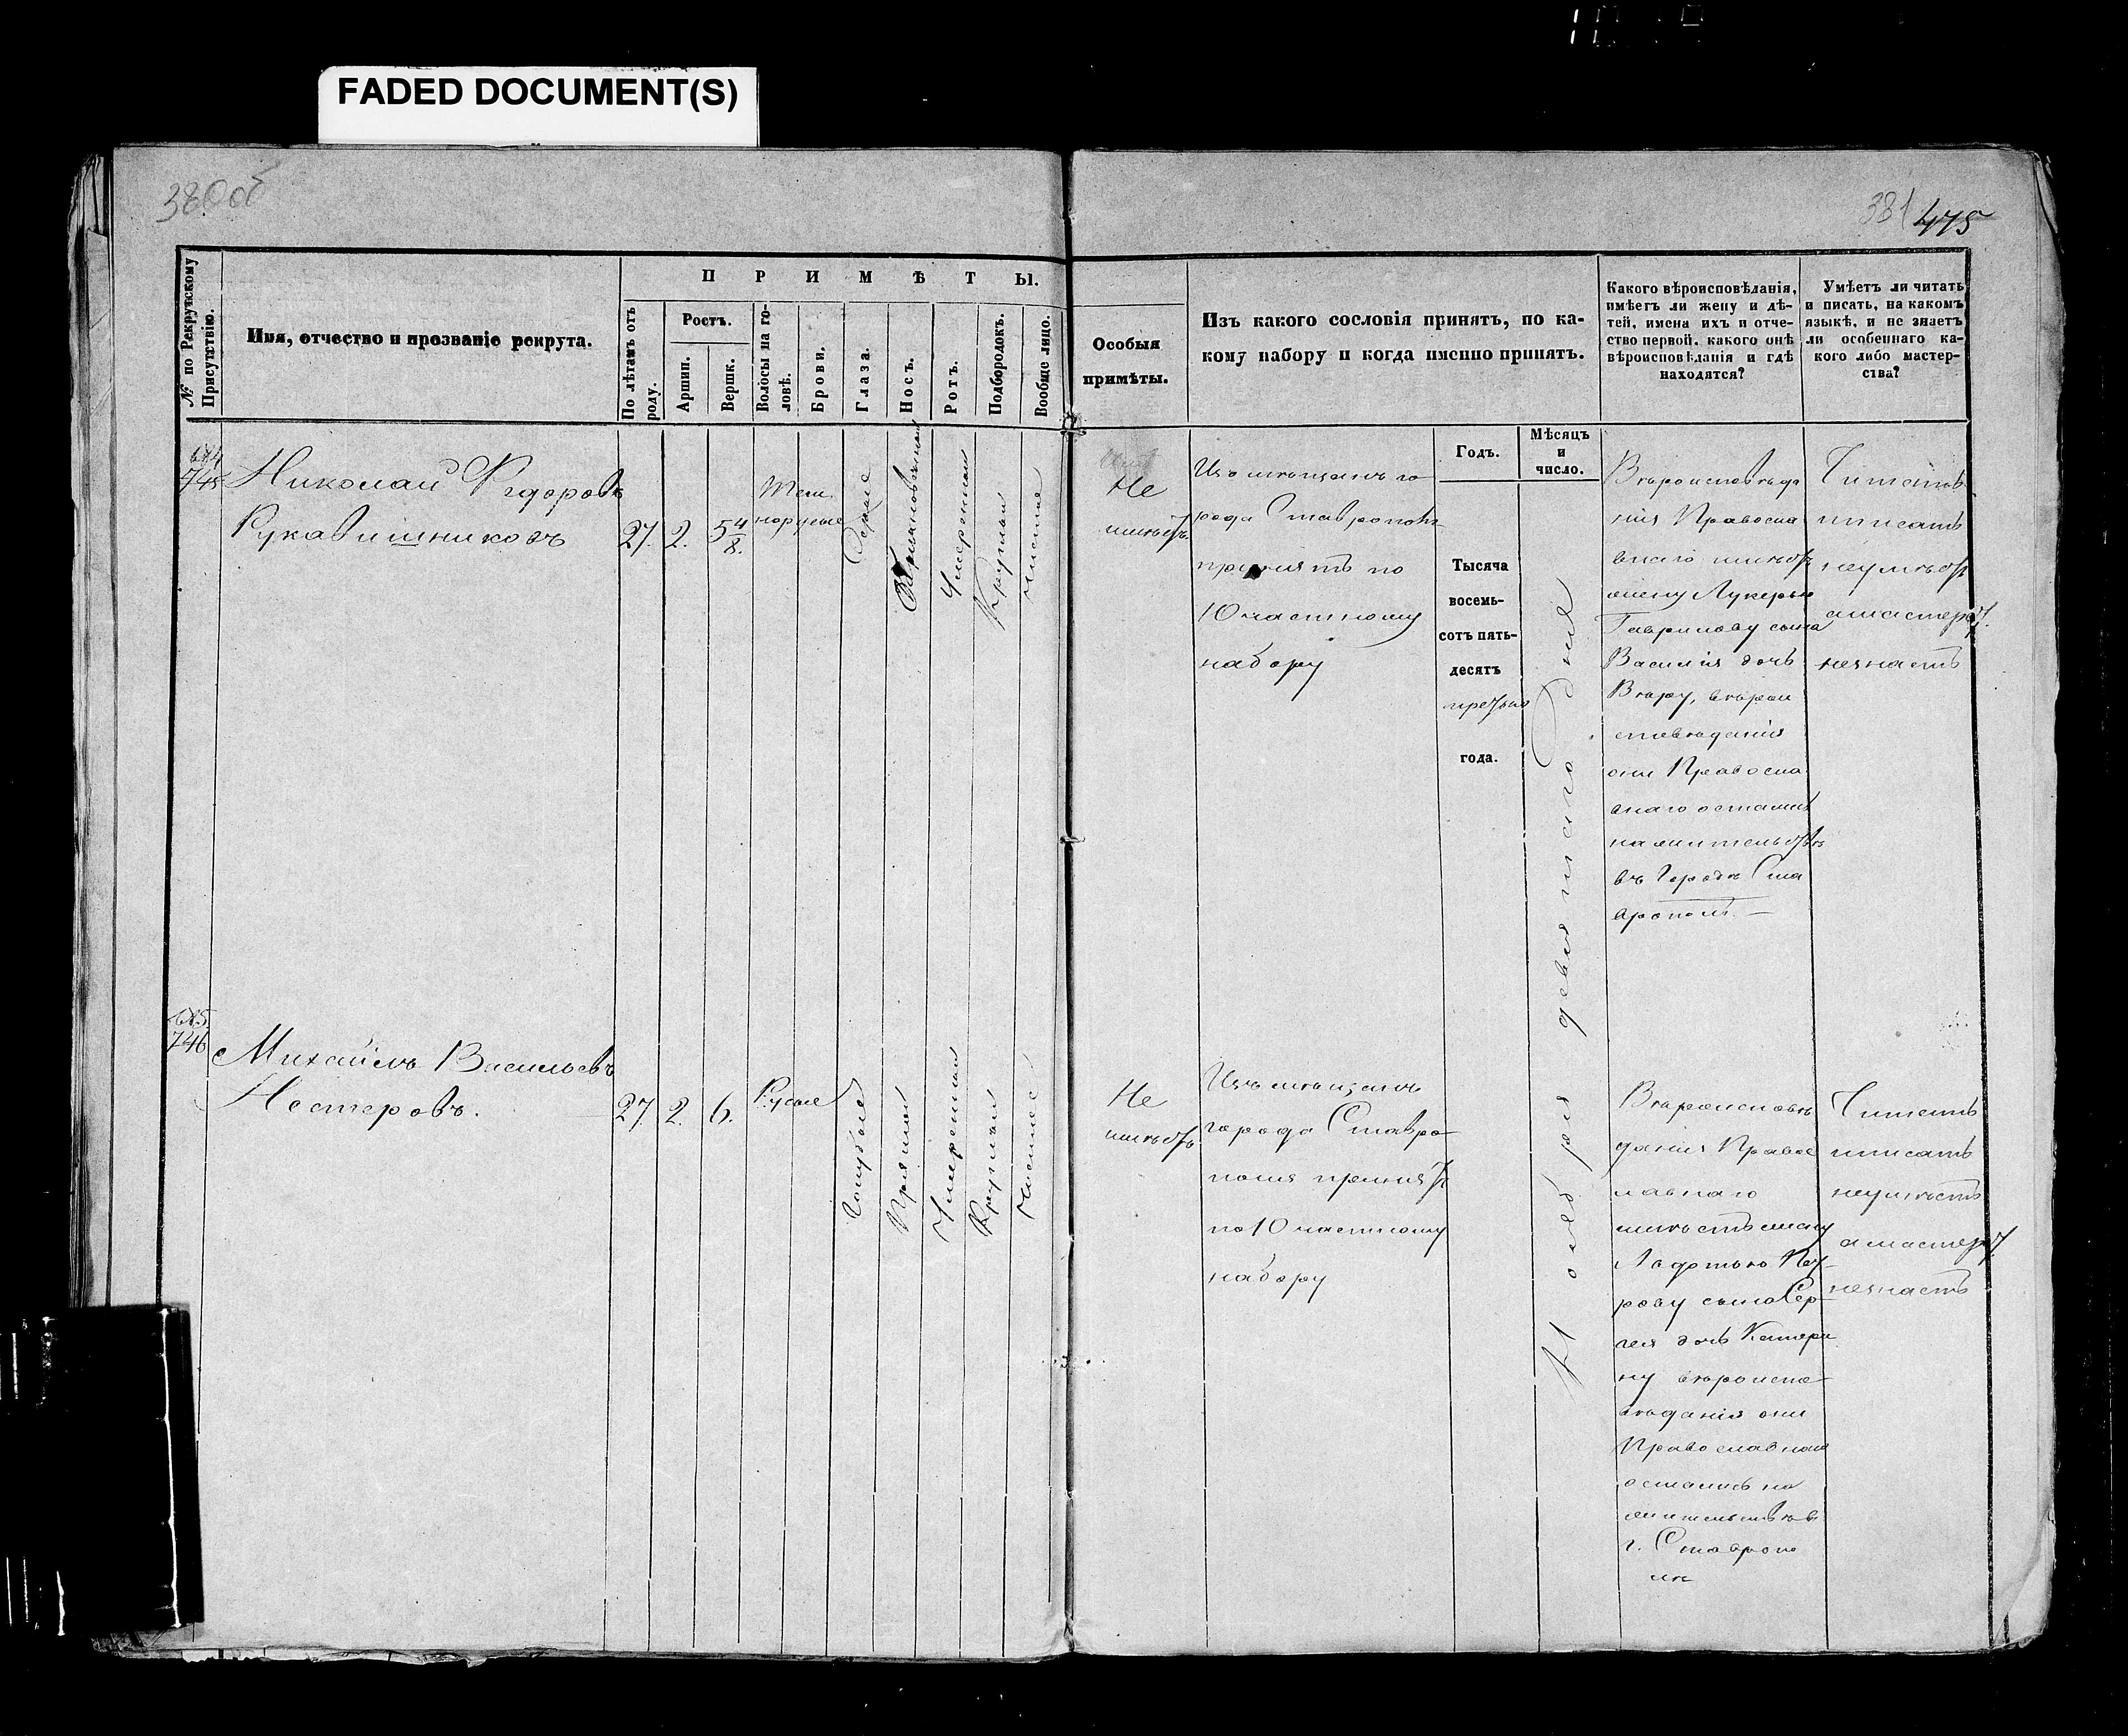 FADED DOCUMENT(S)
380об
381 475
№ по Рекрутскому Присутствію.
Имя, отчество и прозваніе рекрута.
ПРИМѢТЫ.
По лѣтамъ отъ роду.
Ростъ.
Аршин.
Вершк.
Волосы на головѣ.
Брови.
Глаза.
Носъ.
Ротъ.
Подбородокъ.
Вообще лицо.
Особыя
примѣты.
Изъ какого сословія принятъ, по ка-
кому набору и когда именно принятъ.
Какого вѣроисповѣданія,
имѣетъ ли жену и дѣ-
тей, имена ихъ и отче-
ство первой, какого онѣ
вѣроисповѣданія и гдѣ
находятся?
Умѣетъ ли читать
и писать, на какомъ
языкѣ, и не знаетъ
ли особеннаго ка-
кого либо мастер-
ства?
Годъ.
Мѣсяцъ
и
число.
745
Николай Ѳедоровъ
Рукавишниковъ
27. 2. 5 4/8.
Тем
норусые
Сѣрые
Умеренный
Круглый
Чистое
Не
имѣетъ.
Изъ мѣщанъ го
рода Ставрополя
принятъ по
10 частному
набору
Тысяча
восемь-
сотъ пять-
десятъ
третьяго
года.
Ноября девятаго дня
Вѣроисповѣда
нія Правосла
внаго имѣетъ
жену Лукерью
Гаврилову сына
Василія дочь
Вѣру, вѣрои
сповѣданія
они Правосла
внаго остались
на жительствѣ
въ Городѣ Ста
врополѣ.
Читать
писать
неумѣетъ
а мастерст.
незнаетъ
746
Михайлъ Васильевъ
Нестеровъ.
27. 2. 6.
Русые
Голубые
Прямой
Умеренный
Круглый
Чистое
Не
имѣетъ.
Изъ мѣщанъ
города Ставро-
поля принятъ
по 10 частному
набору
Вѣроисповѣ
данія Правос
лавнаго
имѣетъ жену
Федотью Пет-
рову сына Сер-
гея дочь Катери
ну вѣроиспо-
вѣданія они
Православнаго
остались на
жительствѣ в
г. Ставропо
лѣ
Читать
писать
неумѣетъ
а мастерст
незнаетъ